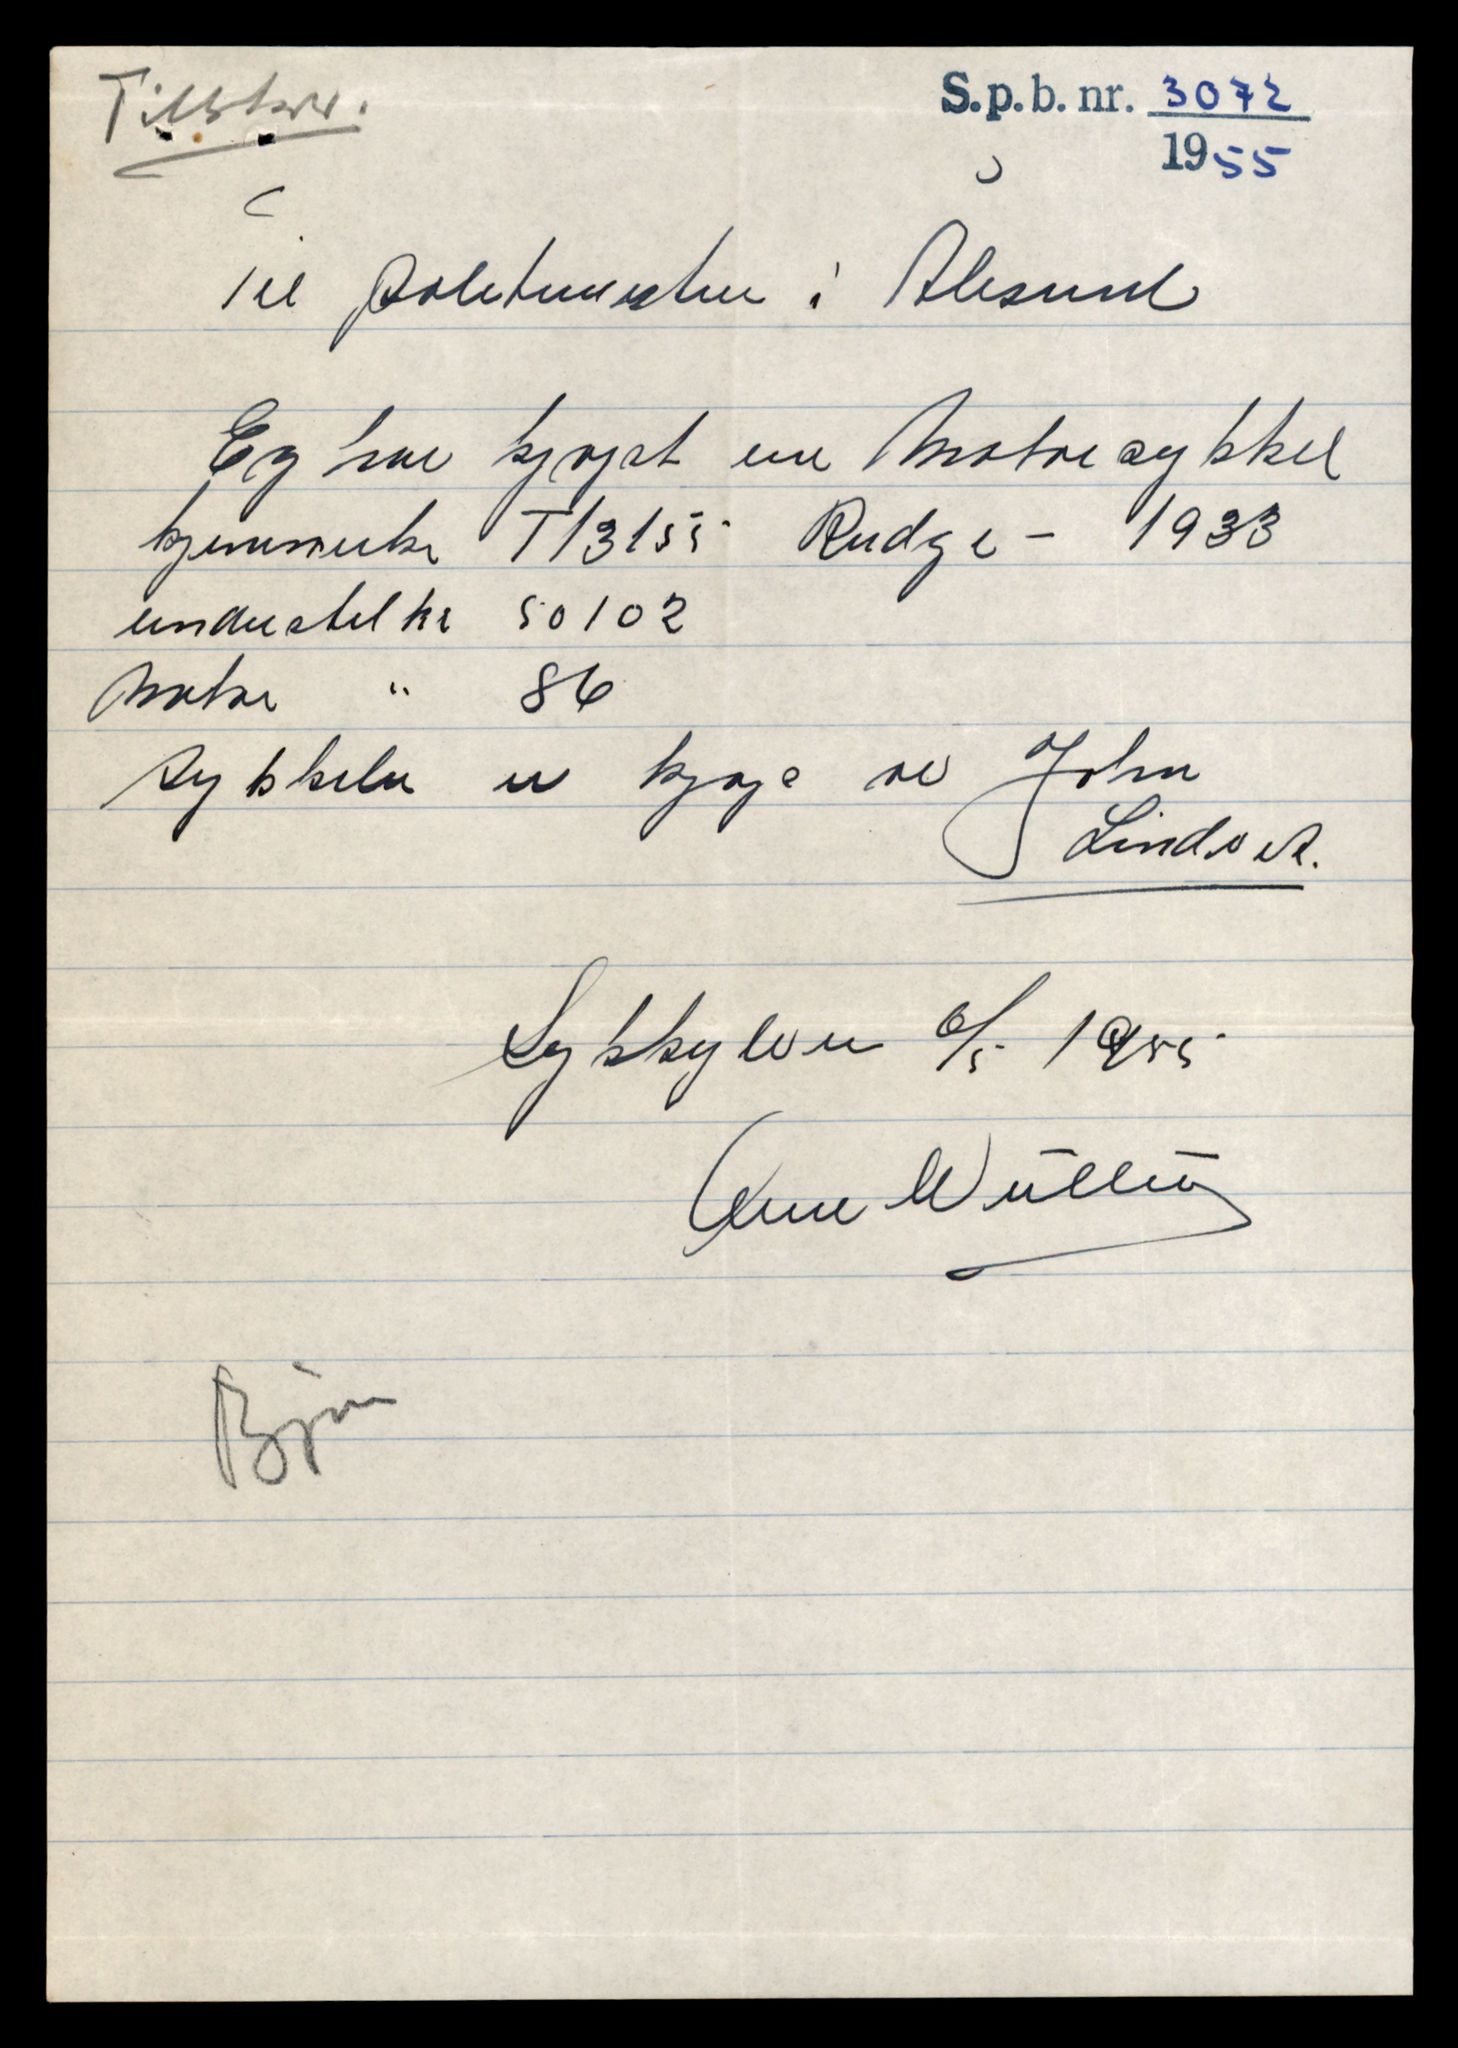 S.p.b. nr. 3072
1955
Til Politimester i Ålesund
Eg har kjøpt en Motorsykkel
kjennmerke T13155 Rudge - 1933
understel nr 50102
Motor " 86
sykkeln er kjøpe av John
Lindset.
Sykkylven 6/5 1955
Bjørn